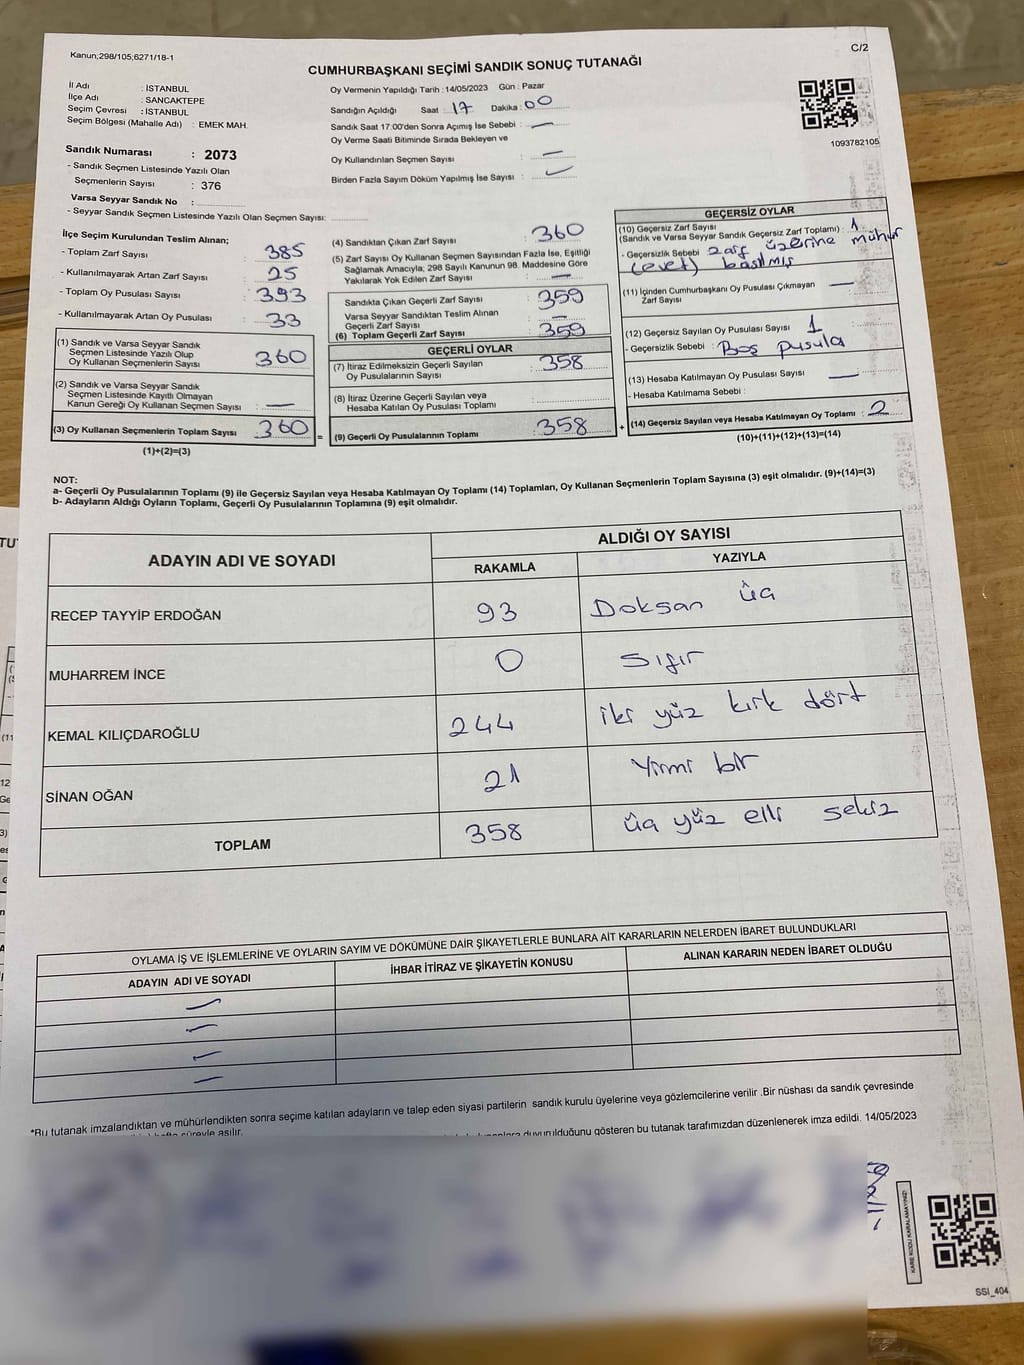 Kanun;298/105;6271/18-1
C/2
CUMHURBAŞKANI SEÇİMİ SANDIK SONUÇ TUTANAĞI
İl Adı : İSTANBUL
İlçe Adı : SANCAKTEPE
Seçim Çevresi : İSTANBUL
Seçim Bölgesi (Mahalle Adı) : EMEK MAH.
Sandık Numarası : 2073
- Sandık Seçmen Listesinde Yazılı Olan
Seçmenlerin Sayısı : 376
Varsa Seyyar Sandık No :
- Seyyar Sandık Seçmen Listesinde Yazılı Olan Seçmen Sayısı:
Oy Vermenin Yapıldığı Tarih : 14/05/2023 Gün : Pazar
Sandığın Açıldığı Saat : 17 Dakika : 00
Sandık Saat 17:00'den Sonra Açımış İse Sebebi : —
Oy Verme Saati Bitiminde Sırada Bekleyen ve
Oy Kullandırılan Seçmen Sayısı : —
Birden Fazla Sayım Döküm Yapılmış İse Sayısı : —
1093782105
İlçe Seçim Kurulundan Teslim Alınan;
- Toplam Zarf Sayısı : 385
- Kullanılmayarak Artan Zarf Sayısı : 25
- Toplam Oy Pusulası Sayısı : 393
- Kullanılmayarak Artan Oy Pusulası : 33
(1) Sandık ve Varsa Seyyar Sandık
Seçmen Listesinde Yazılı Olup
Oy Kullanan Seçmenlerin Sayısı : 360
(2) Sandık ve Varsa Seyyar Sandık
Seçmen Listesinde Kayıtlı Olmayan
Kanun Gereği Oy Kullanan Seçmen Sayısı : —
(3) Oy Kullanan Seçmenlerin Toplam Sayısı : 360
(1)+(2)=(3)
(4) Sandıktan Çıkan Zarf Sayısı : 360
(5) Zarf Sayısı Oy Kullanan Seçmen Sayısından Fazla İse, Eşitliği
Sağlamak Amacıyla; 298 Sayılı Kanunun 98. Maddesine Göre
Yakılarak Yok Edilen Zarf Sayısı : —
Sandıkta Çıkan Geçerli Zarf Sayısı : 359
Varsa Seyyar Sandıktan Teslim Alınan
Geçerli Zarf Sayısı : —
(6) Toplam Geçerli Zarf Sayısı : 359
GEÇERLİ OYLAR
(7) İtiraz Edilmeksizin Geçerli Sayılan
Oy Pusulalarının Sayısı : 358
(8) İtiraz Üzerine Geçerli Sayılan veya
Hesaba Katılan Oy Pusulası Toplamı :
= (9) Geçerli Oy Pusulalarının Toplamı : 358
GEÇERSİZ OYLAR
(10) Geçersiz Zarf Sayısı
(Sandık ve Varsa Seyyar Sandık Geçersiz Zarf Toplamı) : 1
- Geçersizlik Sebebi : zarf üzerine mühür
(evet) basılmış
(11) İçinden Cumhurbaşkanı Oy Pusulası Çıkmayan
Zarf Sayısı : —
(12) Geçersiz Sayılan Oy Pusulası Sayısı : 1
- Geçersizlik Sebebi : Boş pusula
(13) Hesaba Katılmayan Oy Pusulası Sayısı : —
- Hesaba Katılmama Sebebi :
+ (14) Geçersiz Sayılan veya Hesaba Katılmayan Oy Toplamı : 2
(10)+(11)+(12)+(13)=(14)
NOT:
a- Geçerli Oy Pusulalarının Toplamı (9) ile Geçersiz Sayılan veya Hesaba Katılmayan Oy Toplamı (14) Toplamları, Oy Kullanan Seçmenlerin Toplam Sayısına (3) eşit olmalıdır. (9)+(14)=(3)
b- Adayların Aldığı Oyların Toplamı, Geçerli Oy Pusulalarının Toplamına (9) eşit olmalıdır.
ADAYIN ADI VE SOYADI ALDIĞI OY SAYISI
RAKAMLA YAZIYLA
RECEP TAYYİP ERDOĞAN 93 Doksan üç
MUHARREM İNCE 0 Sıfır
KEMAL KILIÇDAROĞLU 244 iki yüz kırk dört
SİNAN OĞAN 21 Yirmi bir
TOPLAM 358 üç yüz elli sekiz
OYLAMA İŞ VE İŞLEMLERİNE VE OYLARIN SAYIM VE DÖKÜMÜNE DAİR ŞİKAYETLERLE BUNLARA AİT KARARLARIN NELERDEN İBARET BULUNDUKLARI
ADAYIN ADI VE SOYADI İHBAR İTİRAZ VE ŞİKAYETİN KONUSU ALINAN KARARIN NEDEN İBARET OLDUĞU
—
—
—
—
*Bu tutanak imzalandıktan ve mühürlendikten sonra seçime katılan adayların ve talep eden siyasi partilerin sandık kurulu üyelerine veya gözlemcilerine verilir .Bir nüshası da sandık çevresinde
hafta süreyle asılır. duyurulduğunu gösteren bu tutanak tarafımızdan düzenlenerek imza edildi. 14/05/2023
KARE KODU KARALAMAYINIZ!
SSI_404